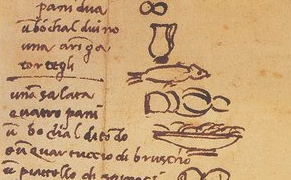 pani dua
ū bochal duino
una aringa
tortegli
una salata
quatro pani
ū bochal di tōdo
e un quartuccio di bruscio
ū piatello di spinaci